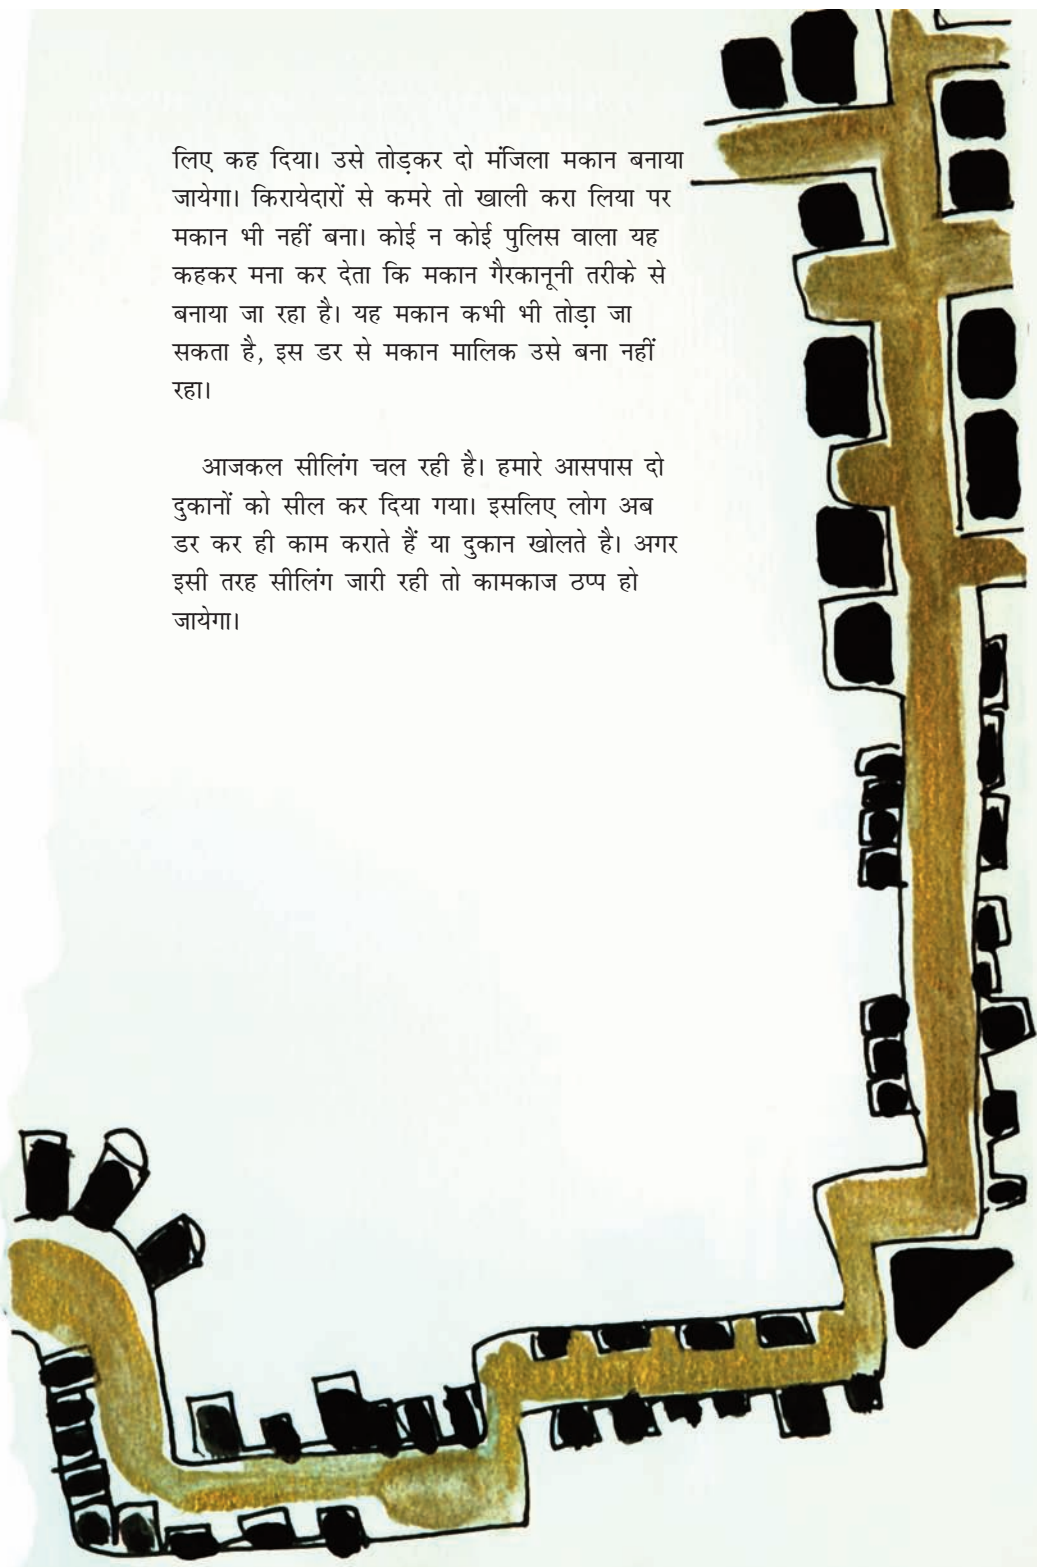 लिए कह दिया। उसे तोड़कर दो मंजिला मकान बनाया
जायेगा। किरायेदारों से कमरे तो खाली करा लिया पर
मकान भी नहीं बना। कोई न कोई पुलिस वाला यह
कहकर मना कर देता कि मकान गैरकानूनी तरीके से
बनाया जा रहा है। यह मकान कभी भी तोड़ा जा
सकता है, इस डर से मकान मालिक उसे बना नहीं
रहा।
आजकल सीलिंग चल रही है। हमारे आसपास दो
दुकानों को सील कर दिया गया। इसलिए लोग अब
डर कर ही काम कराते हैं या दुकान खोलते है। अगर
इसी तरह सीलिंग जारी रही तो कामकाज ठप्प हो
जायेगा।